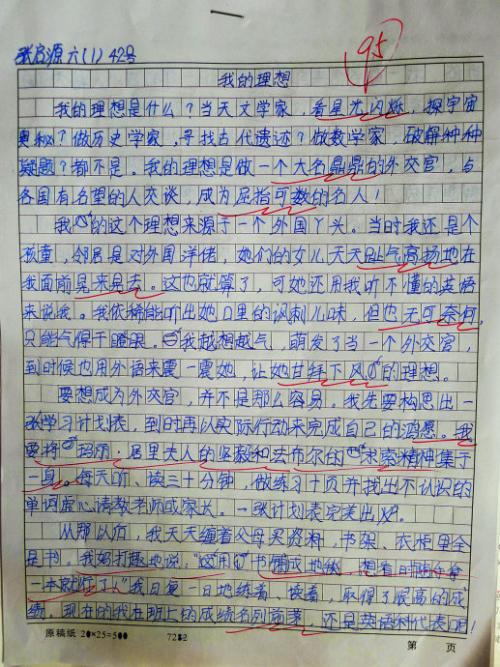 张启源 六(1) 42号
95
我的理想
我的理想是什么？当天文学家，看星光闪烁，探宇宙
奥秘？做历史学家，寻找古代遗迹？做数学家，破解种种
疑题？都不是。我的理想是做一个大名鼎鼎的外交官，与
各国有名望的人交谈，成为屈指可数的名人！
我的这个理想来源于一个外国丫头。当时我还是个
孩童，邻居是对外国洋佬，她们的女儿天天趾气高扬地在
我面前晃来晃去。这也就算了，可她还用我听不懂的英语
来说我。我依稀能听出她口里的讽刺儿味，但也无可奈何，
只能气得干瞪眼。我越想越气，萌发了当一个外交官，
到时候也用外语来震一震她，让她甘拜下风的理想。
要想成为外交官，并不是那么容易，我先要构思出一
张学习计划表，到时再以实际行动来完成自己的鸿愿。我
要将玛丽·居里夫人的坚毅和法布尔的求索精神集于
一身。每天听、读三十分钟，做练习十页并找出不认识的
单词虚心请教老师或家长。一张计划表完美出炉。
从那以后，我天天缠着父母买资料，书架、衣柜里全
是书。我妈打趣地说，"这用书铺成地毯，想看时随手拿
一本就行了！"我日复一日地练着、读着，取得了很高的成
绩，现在的我在班上的成绩名列前茅，还是英语科代表呢！
原稿纸 20×25=500 7282 第 页